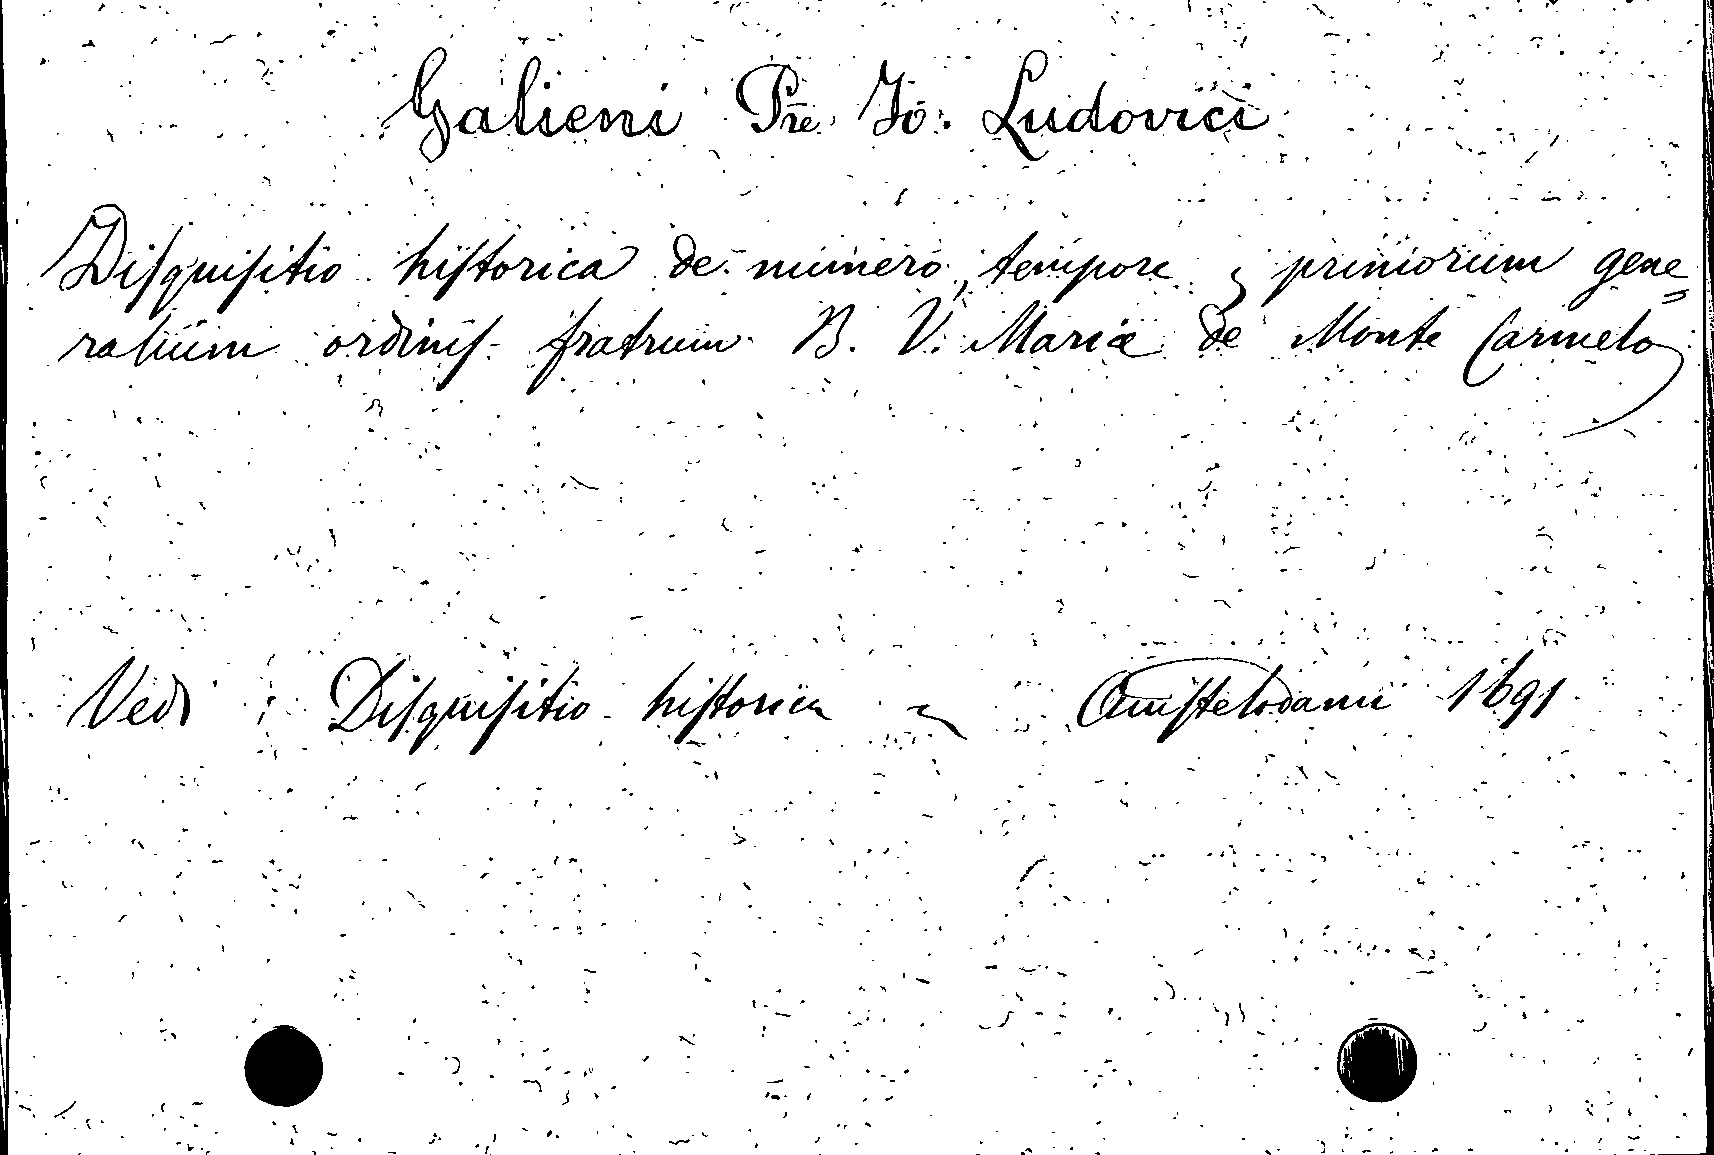 Galieni Pre. Jo: Ludovici
Diſquiſitio hiſtorica de numero, tempore & primorum gene=
ralium ordiniſ fratrum B. V. Mariæ de Monte Carmelo
Vedi: Diſquiſitio hiſtorica Amſtelodami 1691